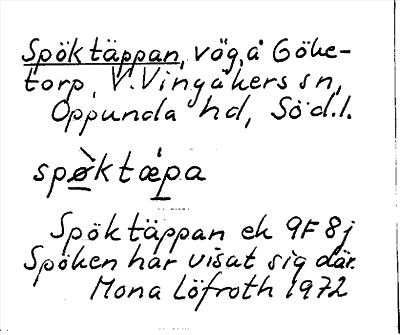 Spöktäppan, väg, å Göke-
torp, V. Vingåkers sn,
Oppunda hd, Söd.l.
spø̀ktæ̇pa
Spöktäppan ek 9F 8j
Spöken har visat sig där.
Mona Löfroth 1972